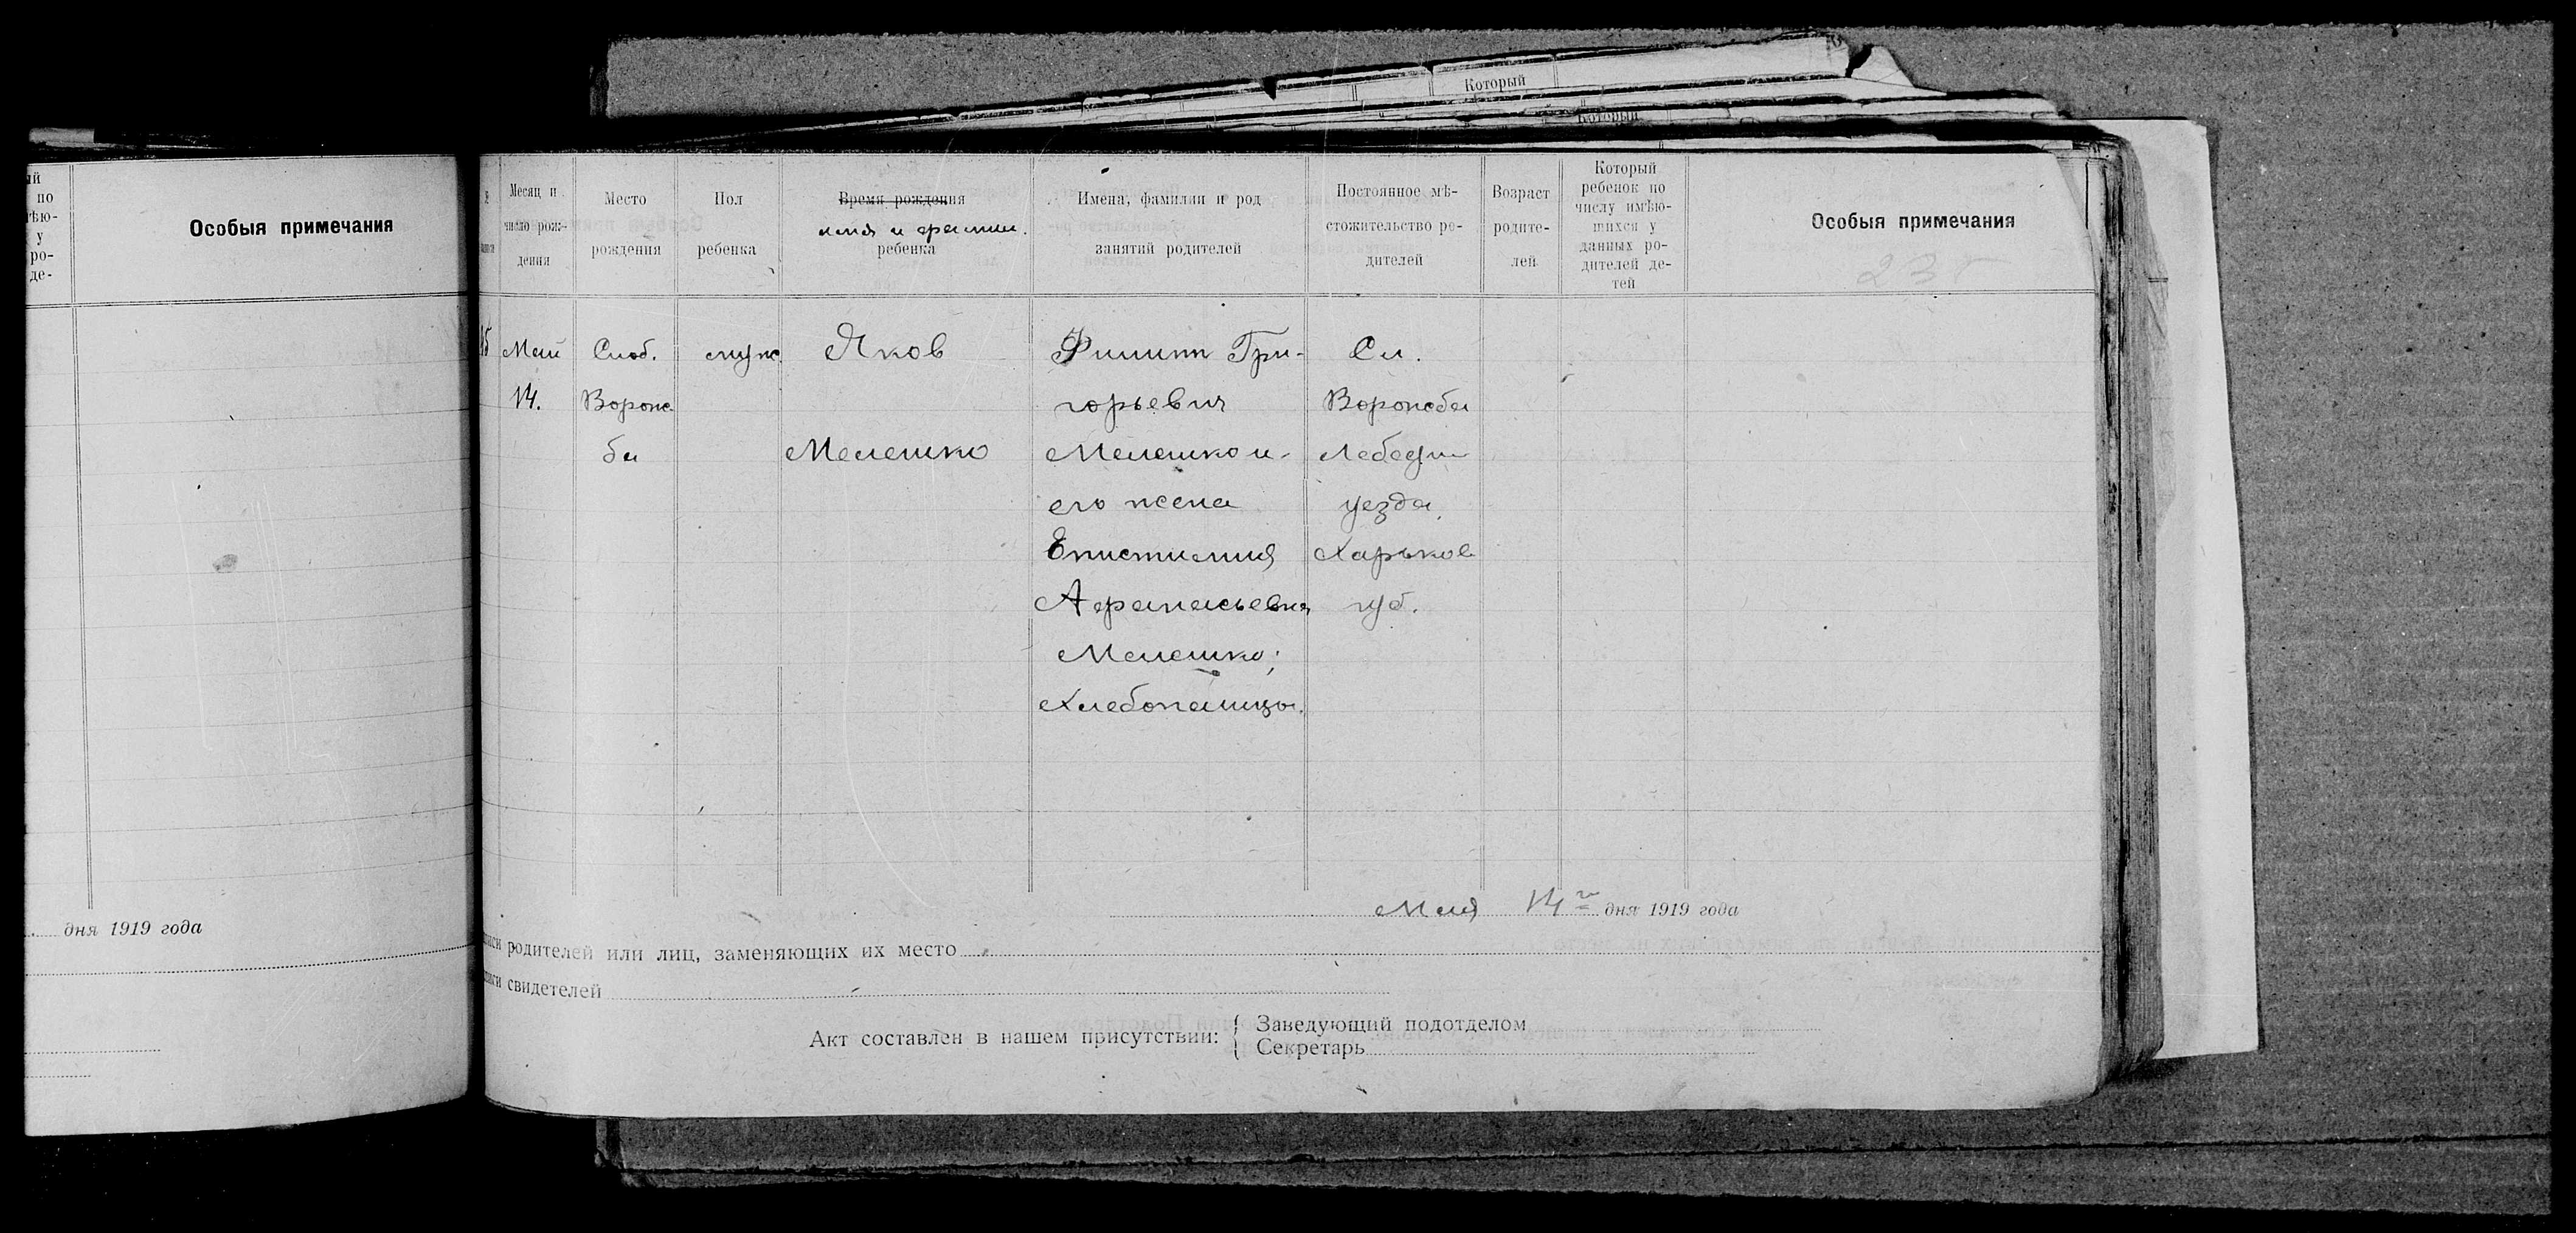 Который
Который
ый
по
ѣю-
у
ро-
де-
Особыя примечания
дня 1919 года
№
Месяц и
число рож-
дения
Место
рождения
Пол
ребенка
Время рождения
имя и фамилия.
ребенка
Имена, фамилии и род
занятий родителей
Постоянное мѣ-
стожительство ро-
дителей
Возраст
родите-
лей
Который
ребенок по
числу имѣю-
щихся у
данных ро-
дителей де-
тей
Особыя примечания
Май
14.
Слоб.
Ворож
ба
муж.
Яков
Мелешко
Филипп Гри-
горьевич
Мелешко и
его жена
Епистимия
Афанасьевна
Мелешко;
Хлебопашцы.
Сл.
Ворожба
Лебедин
уезда
Харьков
губ.
Мая 14го дня 1919 года
родителей или лиц, заменяющих их место
свидетелей
Акт составлен в нашем присутствии:
Заведующий подотделом
Секретарь